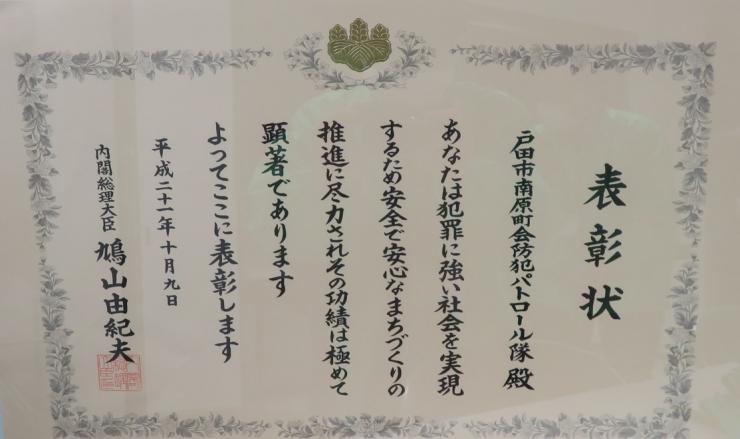 表彰状
戸田市南原町会防犯パトロール隊 殿
あなたは犯罪に強い社会を実現
するため安全で安心なまちづくりの
推進に尽力されその功績は極めて
顕著であります
よってここに表彰します
平成二十一年十月九日
内閣総理大臣 鳩山由紀夫